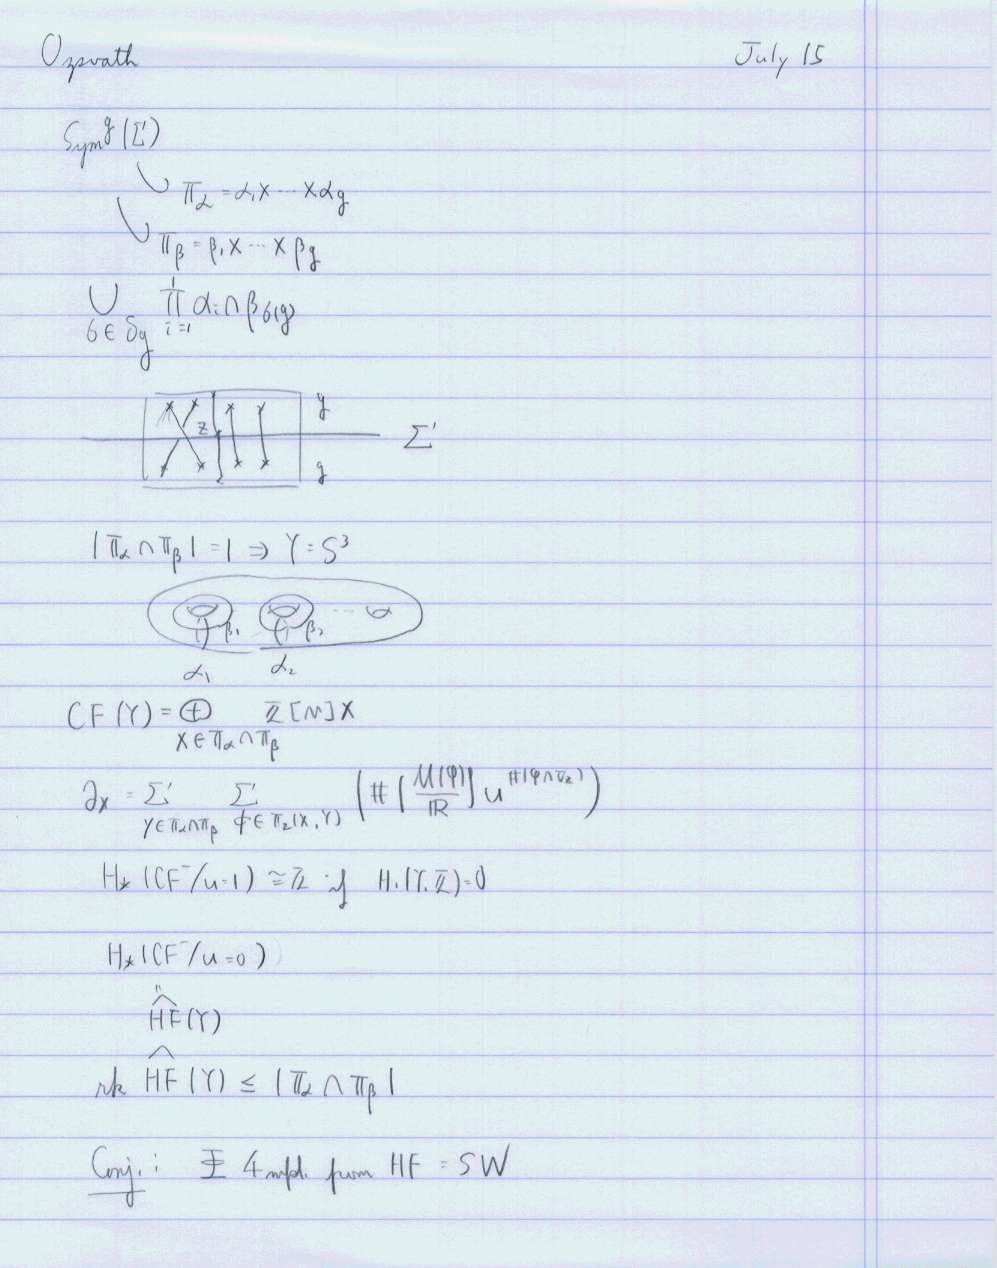 Ozsvath July 15
Sym^g(Σ)
∪ 𝕋_α = α₁ × ··· × α_g
∪ 𝕋_β = β₁ × ··· × β_g
∪_{σ ∈ S_g} ∏_{i=1} α_i ∩ β_{σ(g)}
g
z
Σ
g
|𝕋_α ∩ 𝕋_β| = 1 ⇒ Y = S³
β₁ β₂ ···
α₁ α₂
CF(Y) = ⊕_{x ∈ 𝕋_α ∩ 𝕋_β} ℤ[u] x
∂x = Σ_{y ∈ 𝕋_α ∩ 𝕋_β} Σ_{φ ∈ π₂(x, y)} (#[M(φ)/ℝ] u^{#(φ ∩ V_z)})
H_*(CF⁻/u=1) ≅ ℤ if H₁(Y, ℤ) = 0
H_*(CF⁻/u=0)
"
\widehat{HF}(Y)
rk \widehat{HF}(Y) ≤ |𝕋_α ∩ 𝕋_β|
Conj.: Φ 4 mfd. from HF = SW